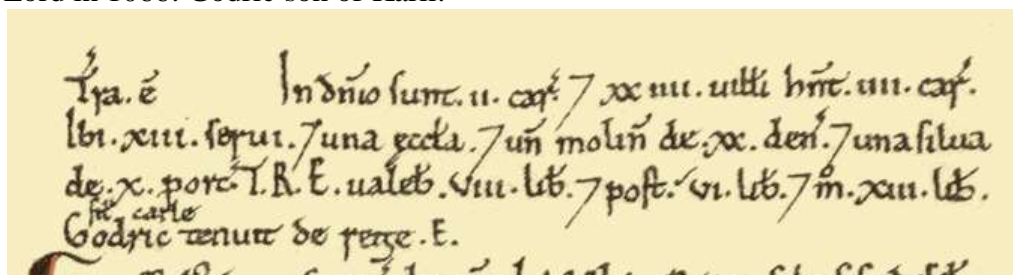 Lord in 1066: Godric son of Karli.
T̃ra. ẽ In dñio sunt. ii. car̃. 7 xx iiii. uilłi hñt. iiii. car̃.
Ibi. xiii. serui. 7 una ęccła. 7 uñ moliñ de. xx. deñ. 7 una silua
de. x. porc̃. T. R. E. ualeƀ. viii. liƀ. 7 post. vi. liƀ. 7 m̊. xiii. liƀ.
fił carle
Godric tenuit de rege. E.